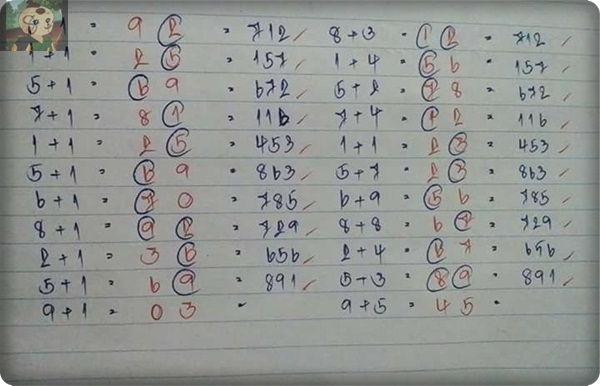 = 9 2 = 712 ✓ 8+3 = 1 2 = 712 ✓
1+1 = 2 5 = 157 ✓ 1+4 = 5 6 = 157 ✓
5+1 = 6 9 = 672 ✓ 5+2 = 7 8 = 672 ✓
7+1 = 8 1 = 116 ✓ 7+4 = 1 2 = 116 ✓
1+1 = 2 5 = 453 ✓ 1+1 = 2 3 = 453 ✓
5+1 = 6 9 = 863 ✓ 5+7 = 2 3 = 863 ✓
6+1 = 7 0 = 785 ✓ 6+9 = 5 6 = 785 ✓
8+1 = 9 2 = 729 ✓ 8+8 = 6 7 = 729 ✓
2+1 = 3 6 = 656 ✓ 2+4 = 6 7 = 656 ✓
5+1 = 6 9 = 891 ✓ 5+3 = 8 9 = 891 ✓
9+1 = 0 3 = 9+5 = 4 5 =